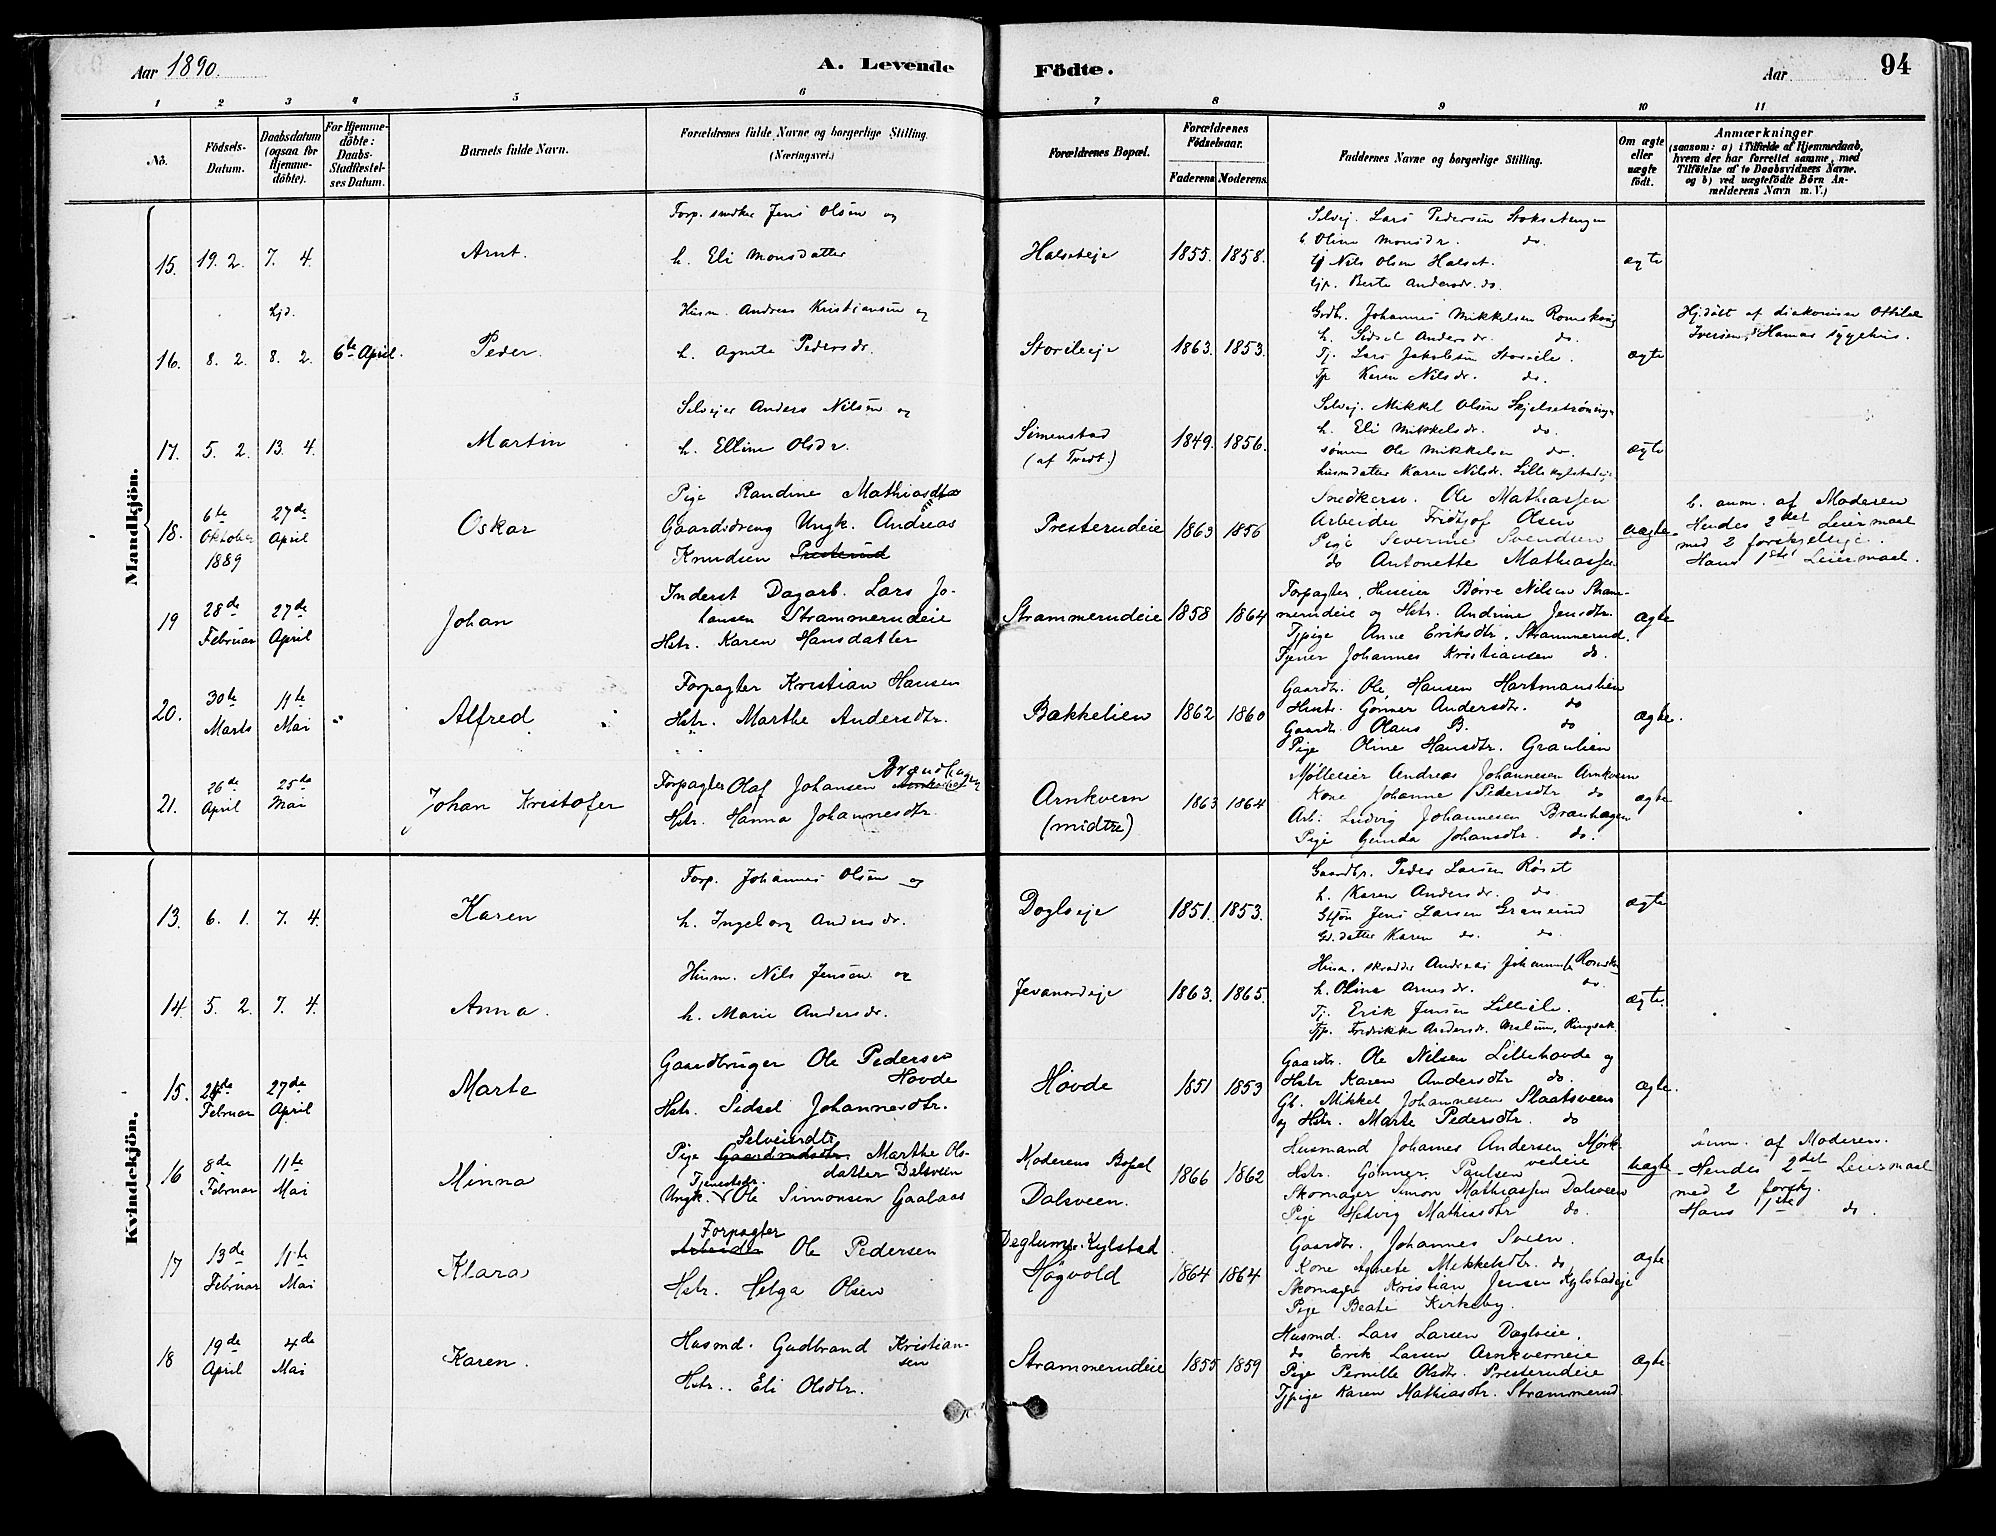 Aar 1890.
A. Levende Födte.
Aar
94
1 2 3 4 5 6 7 8 9 10 11
No.
Födsels-Datum.
Daabsdatum (ogsaa for Hjemme-döbte).
For Hjemme-döbte: Daabs-Stadfæstel-ses Datum.
Barnets fulde Navn.
Forældrenes fulde Navne og borgerlige Stilling. (Næringsvei.)
Forældrenes Bopæl.
Forældrenes Födselsaar.
Faderens Moderens.
Faddernes Navne og borgerlige Stilling.
Om ægte eller uægte födt.
Anmærkninger
(saasom: a) i Tilfælde af Hjemmedaab, hvem der har forrettet samme, med Tilföielse af to Daabsvidners Navne. og b) ved uægtefödte Börn An-melderens Navn m. V.)
Mandkjön.
15. 19. 2. 7. 4. Arnt.
Forp. snedker Jens Olsen og
h. Eli Monsdatter
Halseteje 1855. 1858.
Selvej. Lars Pedersen Stoksetengen
h Oline Monsdr. do.
Nils Olsen Halset.
Berte Andersdr. do.
ægte
16. 8. 2. hjd. 8. 2. 6te April. Peder.
Husm. Andreas Kristiansen og
h. Agnete Pedersdr.
Storileeje 1863. 1853.
Grdb. Johannes Mikkelsen Romskoug
h. Sidsel Andersdr. do.
Tj. Lars Jakobsen Storeile.
Tjp Karen Nilsdr. do.
ægte
Hjdöbt af diakonisse Ottilie
Iversen, Hamar sygehus.
17. 5. 2. 13. 4. Martin
Selvejer Anders Nilsen og
h. Elline Olsdr.
Simenstad
(af Tvedt.)
1849. 1856.
Selvej. Mikkel Olsen Skjelsetröningn
h. Eli Mikkelsdr. do.
sönnen Ole Mikkelsen do.
husmdatter Karen Nilsdr. Lillekylstadeje
ægte
18. 6te Oktober 1889 27de April Oskar
Pige Randine Mathiasdtr
Gaardsdreng Ungk. Andreas
Knudsen Presterud
Presterudeie 1863 1856
Snedkersv. Ole Mathiassen
Arbeider Fridtjof Olsen
Pige Severine Svendsen
do Antonette Mathiassen
uægte
b. anm. af Moderen
Hendes 2det Leiermaal
med 2 forskjellige.
Hans 1ste Leiermaal.
19 28de Februar 27de April Johan
Inderst Dagarb. Lars Jo-
hansen Strammerudeie
Hstr. Karen Hansdatter
Strammerudeie 1858 1864
Forpagter, Huseier Börre Nilsen Stram-
merudeie og Hstr. Andrine Jensdtr.
Tjpige Anne Eriksdtr. Strammerud.
Tjener Johannes Kristiansen do.
ægte
20. 30te Marts 11te Mai Alfred
Forpagter Kristian Hansen
Hstr. Marthe Andersdtr.
Bakkelien 1862 1860
Gaardb. Ole Hansen Hartmanslien
Hustr. Gönner Andersdtr. do
Gaardb. Olaus B. do
Pige Oline Hansdtr. Graulien
ægte.
21. 26de April 25de Mai Johan Kristofer
Forpagter Olaf Johansen Brændhagen
Hstr. Hanna Johannesdtr.
Arnkvern
(midtre)
1863 1864
Mölleeier Andreas Johannesen Arnkvern
Kone Johanne Pedersdtr do
Arb. Ludvig Johannesen Branhagen
Pige Gunda Johansdtr. do.
ægte
Kvindekjön.
13. 6. 1. 7. 4. Karen
Forp. Johannes Olsen og
h. Ingeborg Andersdr.
Doglveje 1851. 1853.
Gaardbr. Peder Larsen Röset
h. Karen Andersdr. do.
Jens Larsen Granerud
Gd. datter Karen do. do.
ægte
14 5. 2. 7. 4. Anna.
Husm. Nils Jensen og
h. Marie Andersdr.
Jevanordeje 1863. 1865.
Husm. skrædder Andreas Johannesen
h. Oline Arnesdr. do.
Tj. Erik Jensen Lilleile.
Tjp. Fredrikke Andersdr. Melum, Ringsak.
ægte.
15. 24de Februar 27de April Marte
Gaardbruger Ole Pedersen
Hovde
Hstr. Sidsel Johannesdtr.
Hövde 1851 1853
Gaardb. Ole Nilsen Lillehovde og
Hstr Karen Andersdtr do.
Gb. Mikkel Johannesen Slaatsveen
og Hstr. Marte Pedersdtr. do
ægte
16 8de Februar 11te Mai Minna
Selveierdtr
Pige Gaardmdsdtr Marthe Ols-
datter Dalsveen
Tjenestedr.
Ungk. Ole Simonsen Gaalaas
Moderens Bopæl
Dalsveen.
1866 1862
Husmand Johannes Andersen Mörk-
vedeie
Hstr. Gönner Paulsen
Skomager Simon Mathiassen Dalsveen
Pige Hedvig Mathiasdtr do.
uægte
Anm. af Moderen.
Hendes 2det Leiermaal
med 2 forskj.
Hans 1ste do.
17 13de Februar 11te Mai Klara
Forpagter
Arbeider Ole Pedersen
Hstr. Helga Olsen
Deglum Kylstad
Högvold
1864 1864
Gaardb. Johannes Sveen.
Kone Agnete Mikkelsdtr. do
Skomager Kristian Jensen Kylstadeje
Pige Beate Kirkeby.
ægte
18 19de April 4de Mai Karen.
Husmd. Gudbrand Kristian-
sen
Hstr. Eli Olsdtr.
Strammerudeie 1855 1859
Husmd. Lars Larsen Doglveie.
do Erik Larsen Arnkverneie
Pige Pernille Olsdtr. Presterudeie
Tjpige Karen Mathiasdtr. Strammerud
ægte